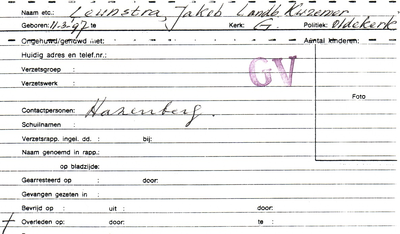 Naam etc.: Teunstra, Jakob Lands Kuzemer
Geboren: 11-3-97 te Kerk: G. Politiek: Oldekerk
Ongehuwd/gehuwd met: Aantal kinderen:
Huidig adres en telef.nr.:
Verzetsgroep :
Verzetswerk :
GV
Foto
Contactpersonen: Hazenberg.
Schuilnamen :
Verzetsrapp. ingel. dd. : bij:
Naam genoemd in rapp.:
op bladzijde:
Gearresteerd op : door:
Gevangen gezeten in :
Bevrijd op : uit : door:
Overleden op: door: te :